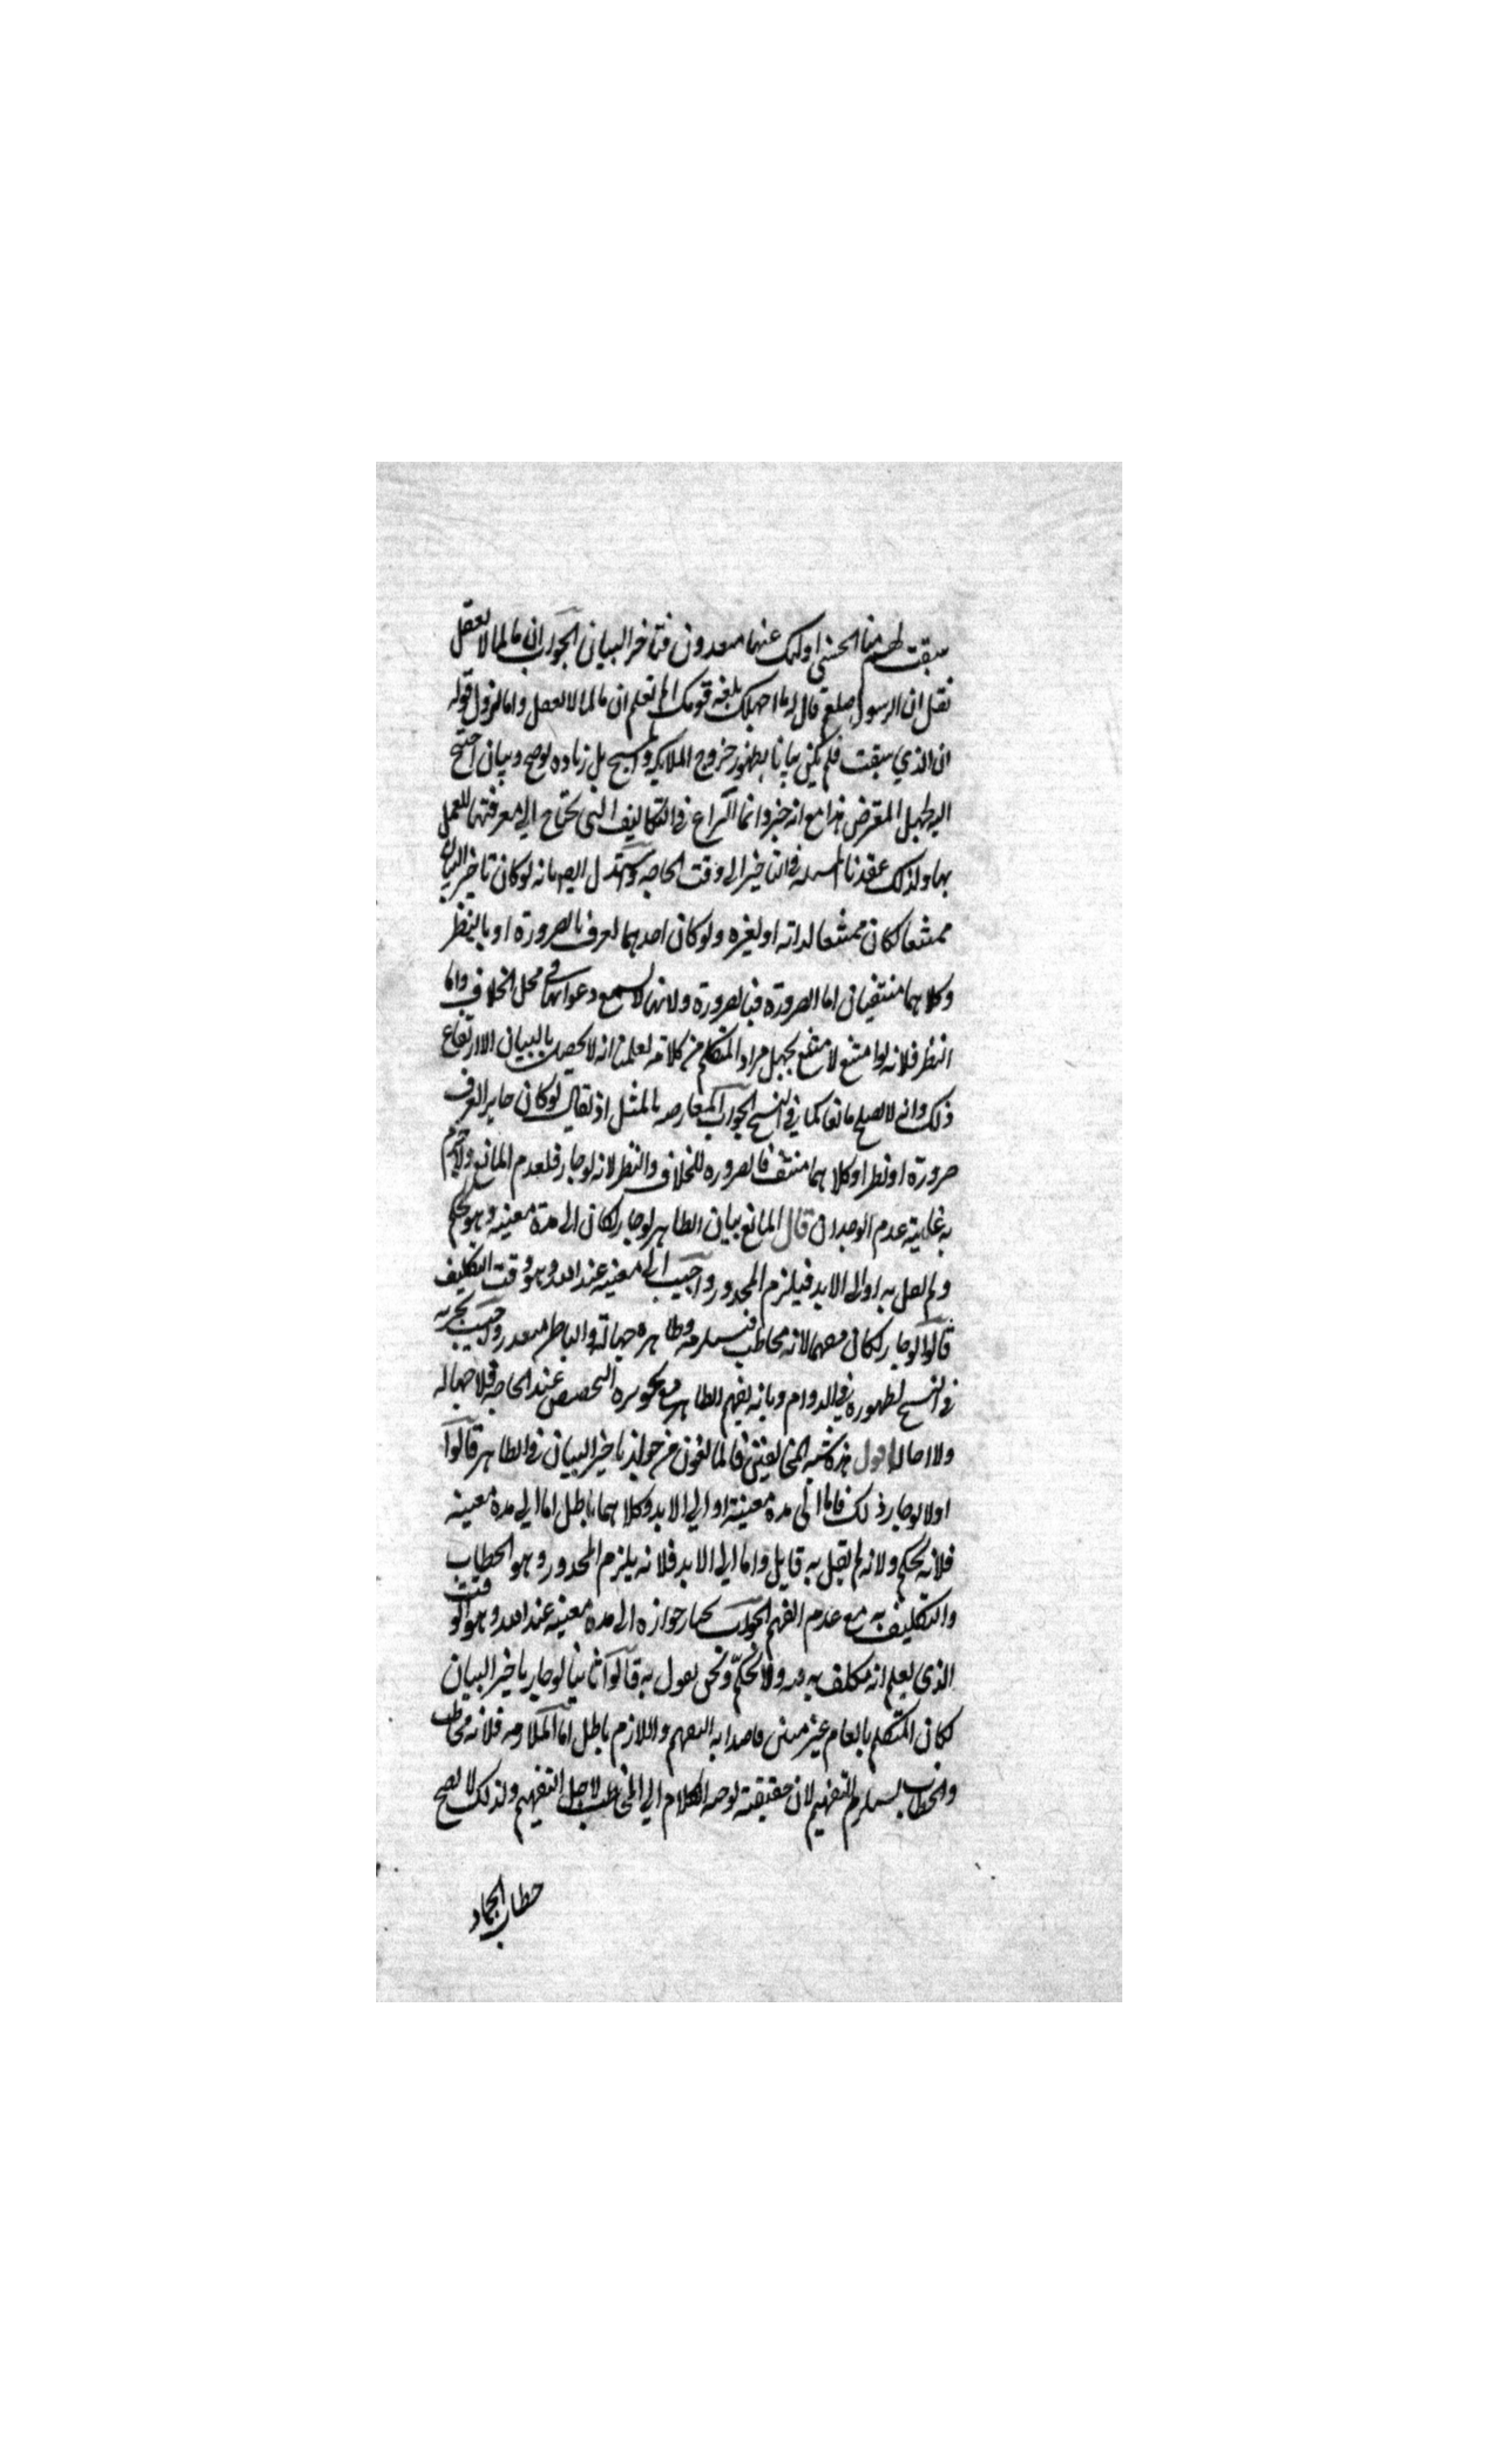 سبقت لهم منا الحسنى اولئك عنها مبعدون فتاخر البيان الجواب ان ما لما لا يعقل
نقل ان الرسول صلعم قال له ما اجهلك بلغة قومك الم تعلم ان ما لما لا يعقل واما نزول قوله
ان الذي سبقت فلم يكن بيانا بظهور خروج الملايكة والمسيح بل زيادة توضيح وبيان احتيج
اليه لجهل المعترض هذا مع انه خبر وانما النزاع في التكاليف التي تحتاج الى معرفتها للعمل
بها ولذلك عقدنا المسلة في التاخير الى وقت الحاجة واستدل ايضا بانه لو كان تاخير البيان
ممتنعا لكان ممتنعا لذاته او لغيره ولو كان احدهما لعرف بالضرورة او بالنظر
وكلاهما منتفيان اما الضرورة فبالضرورة ولانها لا تسمع دعواها في محل الخلاف واما
النظر فلانه لو امتنع لامتنع لجهل مراد المتكلم من كلامه لعلمنا انه لا يحصل بالبيان الا ارتفاع
ذلك وانه لا يصلح مانعا كما في النسخ الجواب المعارضة بالمثل اذ يقال لو كان جايزا لعرف
ضرورة او نظرا وكلاهما منتف فالضرورة للخلاف والنظر لانه لو جاز فلعدم المانع ولا جزم
به غايته عدم الوجدان قال المانع بيان الظاهر لو جاز لكان الى مدة معينة وهو تحكم
ولم يقل به او الى الابد فيلزم المحذور واجيب الى معينة عند الله وهو وقت التكليف
قالوا لو جاز لكان مفهما لانه مخاطب فيستلزمه وظاهره جهالة والباطن متعذر واجيب بجريه
في النسخ لظهوره في الدوام وبانه يفهم الظاهر مع تجويزه التخصيص عند الحاجة فلا جهالة
ولا احالة اقول هذه شبه المخالفين فالمانعون من جواز تاخير البيان في الظاهر قالوا
اولا لو جاز ذلك فاما الى مدة معينة او الى الابد وكلاهما باطل اما الى مدة معينة
فلانه تحكم ولانه لم يقل به قايل واما الى الابد فلانه يلزم المحذور وهو الخطاب
والتكليف به مع عدم الفهم الجواب نختار جوازه الى مدة معينة عند الله وهو الوقت
الذي يعلم انه مكلف به فيه ولا تحكم ونحن نقول به قالوا ثانيا لو جاز تاخير البيان
لكان المتكلم بالعام غير مبين قاصدا به التفهيم واللازم باطل اما الملازمة فلانه مخاطب
والخطاب يستلزم التفهيم لان حقيقته توجه الكلام الى المخاطب لاجل التفهيم ولذلك لا يصح
خطاب الجماد